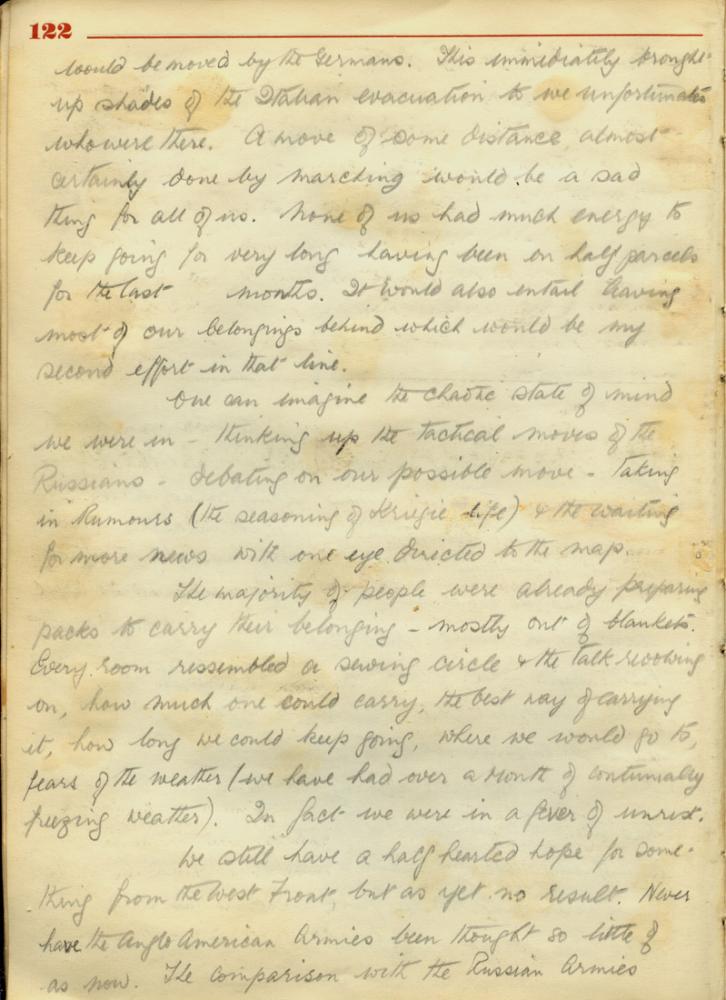 122
would be moved by the Germans. This immidiatly brought
up shades of the Italian evacuation to we unfortunates
who were there. A move of some distance, almost
certainly done by marching would be a sad
thing for all of us. None of us had much energy to
keep going for very long having been on half parcels
for the last months. It would also entail leaving
most of our belongings behind which would be my
second effort in that line.
One can imagine the chaotic state of mind
we were in - thinking up the tactical moves of the
Russians - debating on our possible move - taking
in Rumours (the seasoning of Kriegie life) & the waiting
for more news with one eye directed to the map.
The majority of people were already preparing
packs to carry their belonging - mostly out of blankets.
Every room ressembled a sewing circle & the talk revolving
on, how much one could carry, the best way of carrying
it, how long we could keep going, where we would go to,
fears of the weather (we have had over a month of contunially
freezing weather). In fact we were in a fever of unrest.
We still have a half hearted hope for some-
thing from the West Front, but as yet no result. Never
have the Anglo American Armies been thought so little of
as now. The comparison with the Russian Armies